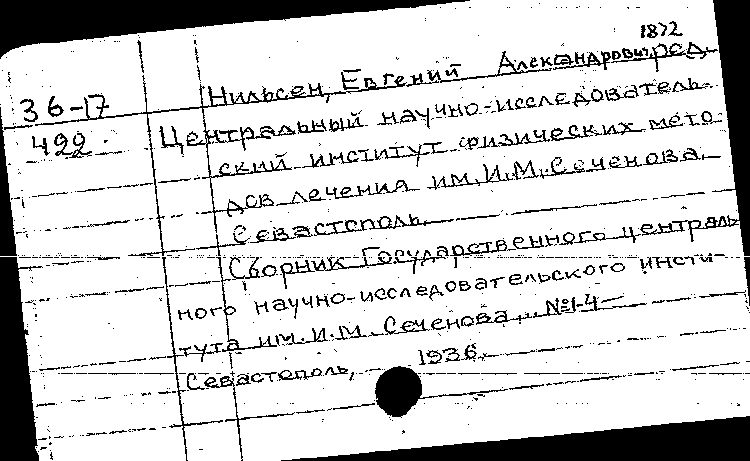 1872
Нильсен, Евгений Александрович, ред.
36-17
422.
Централь­ный научно-исследователь-
ский институт физических мето-
дов лечения им. И.М. Сеченова.
Севастополь.
Сборник Государственного централь-
ного научно-исследовательского инсти-
тута им. И.М. Сеченова, №1-4
Севастополь, 1936.